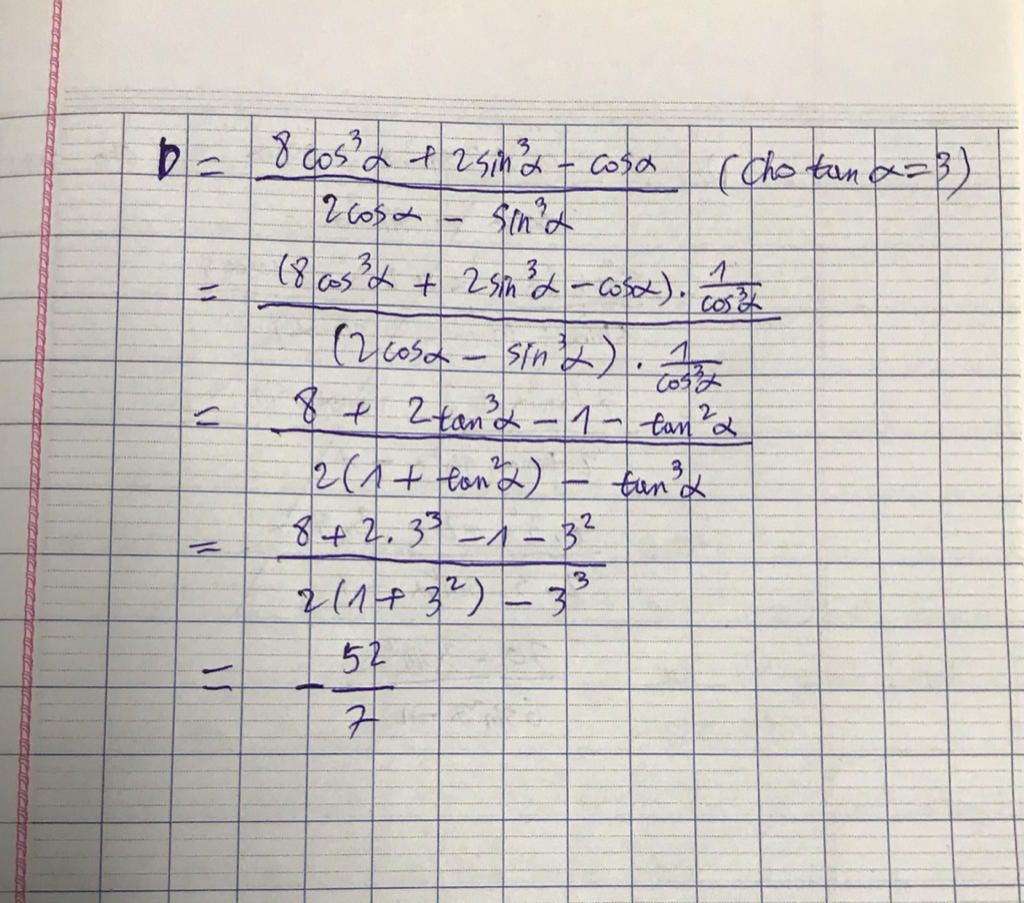 D = (8cos³α + 2sin³α - cosα) / (2cosα - sin³α) (Cho tan α = 3)
= ((8cos³α + 2sin³α - cosα) · 1/cos³α) / ((2cosα - sin³α) · 1/cos³α)
= (8 + 2tan³α - 1 - tan²α) / (2(1 + tan²α) - tan³α)
= (8 + 2.3³ - 1 - 3²) / (2(1 + 3²) - 3³)
= - 52/7